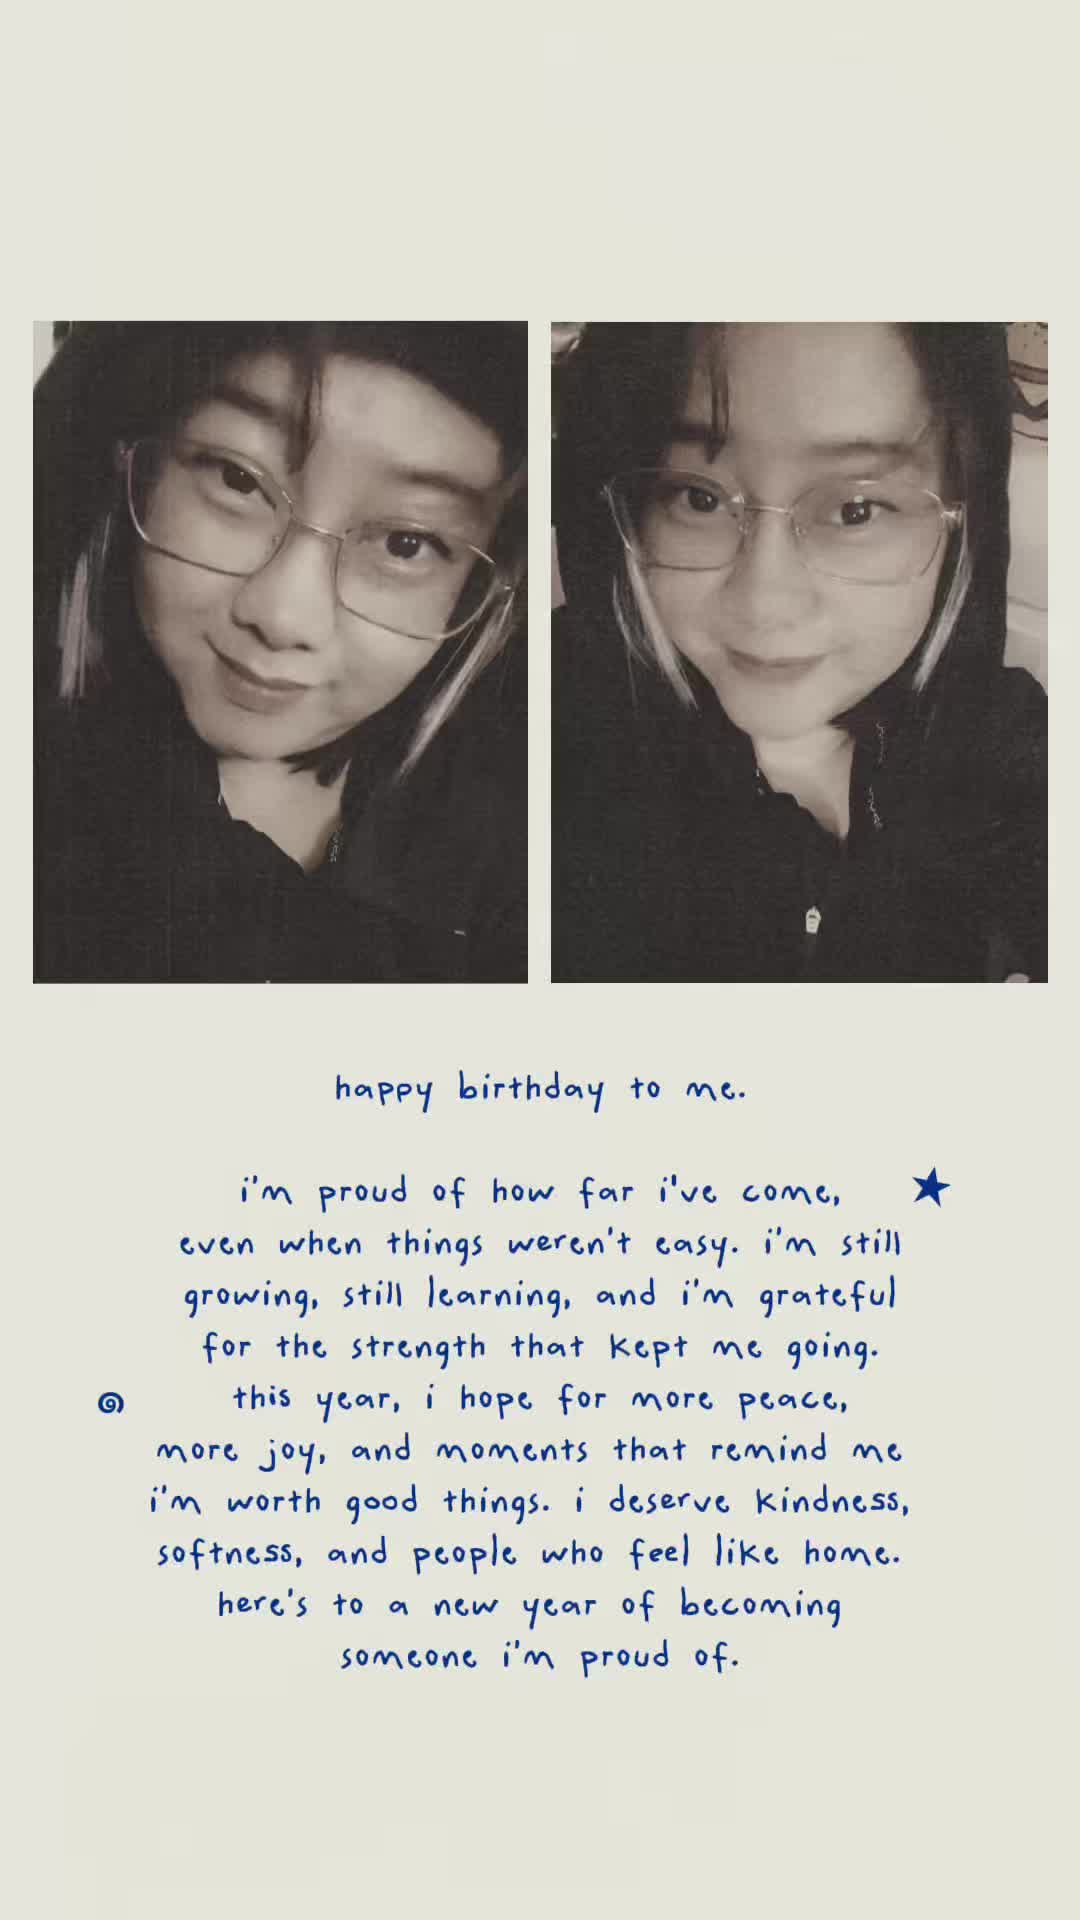 happy birthday to me.
i'm proud of how far i've come,
even when things weren't easy. i'm still
growing, still learning, and i'm grateful
for the strength that kept me going.
this year, i hope for more peace,
more joy, and moments that remind me
i'm worth good things. i deserve kindness,
softness, and people who feel like home.
here's to a new year of becoming
someone i'm proud of.